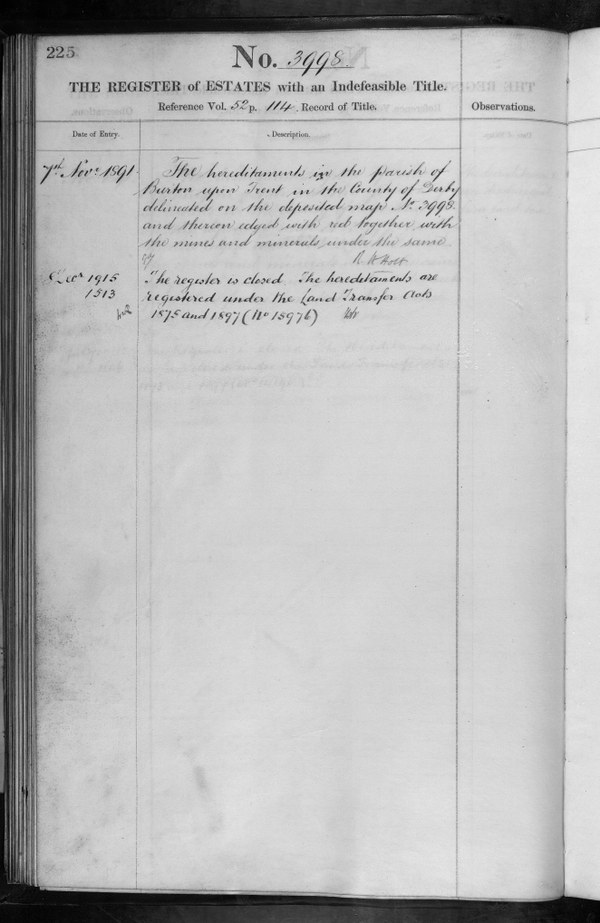 225
No. 3998.
THE REGISTER of ESTATES with an Indefeasible Title.
Reference Vol. 52 p. 114. Record of Title.
Observations.
Date of Entry.
Description.
7th Novr 1891
The hereditaments in the parish of
Burton upon Trent in the County of Derby
delineated on the deposited map No 3998
and thereon edged with red together with
the mines and minerals under the same
R H Holt
Decr 1915
1513
The register is closed. The hereditaments are
registered under the Land Transfer Acts
1875 and 1897 (No 15976)